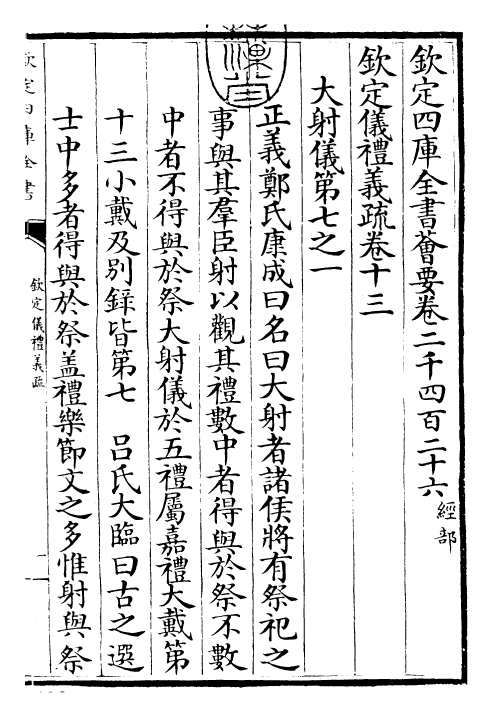 欽定四庫全書薈要卷二千四百二十六經部
欽定儀禮義疏卷十三
大射儀第七之一
正義鄭氏康成曰名曰大射者諸侯將有祭祀之
事與其羣臣射以觀其禮數中者得與於祭不數
中者不得與於祭大射儀於五禮屬嘉禮大戴第
十三小戴及別錄皆第七 呂氏大臨曰古之選
士中多者得與於祭盖禮樂節文之多惟射與祭
欽定四庫全書
欽定儀禮義疏